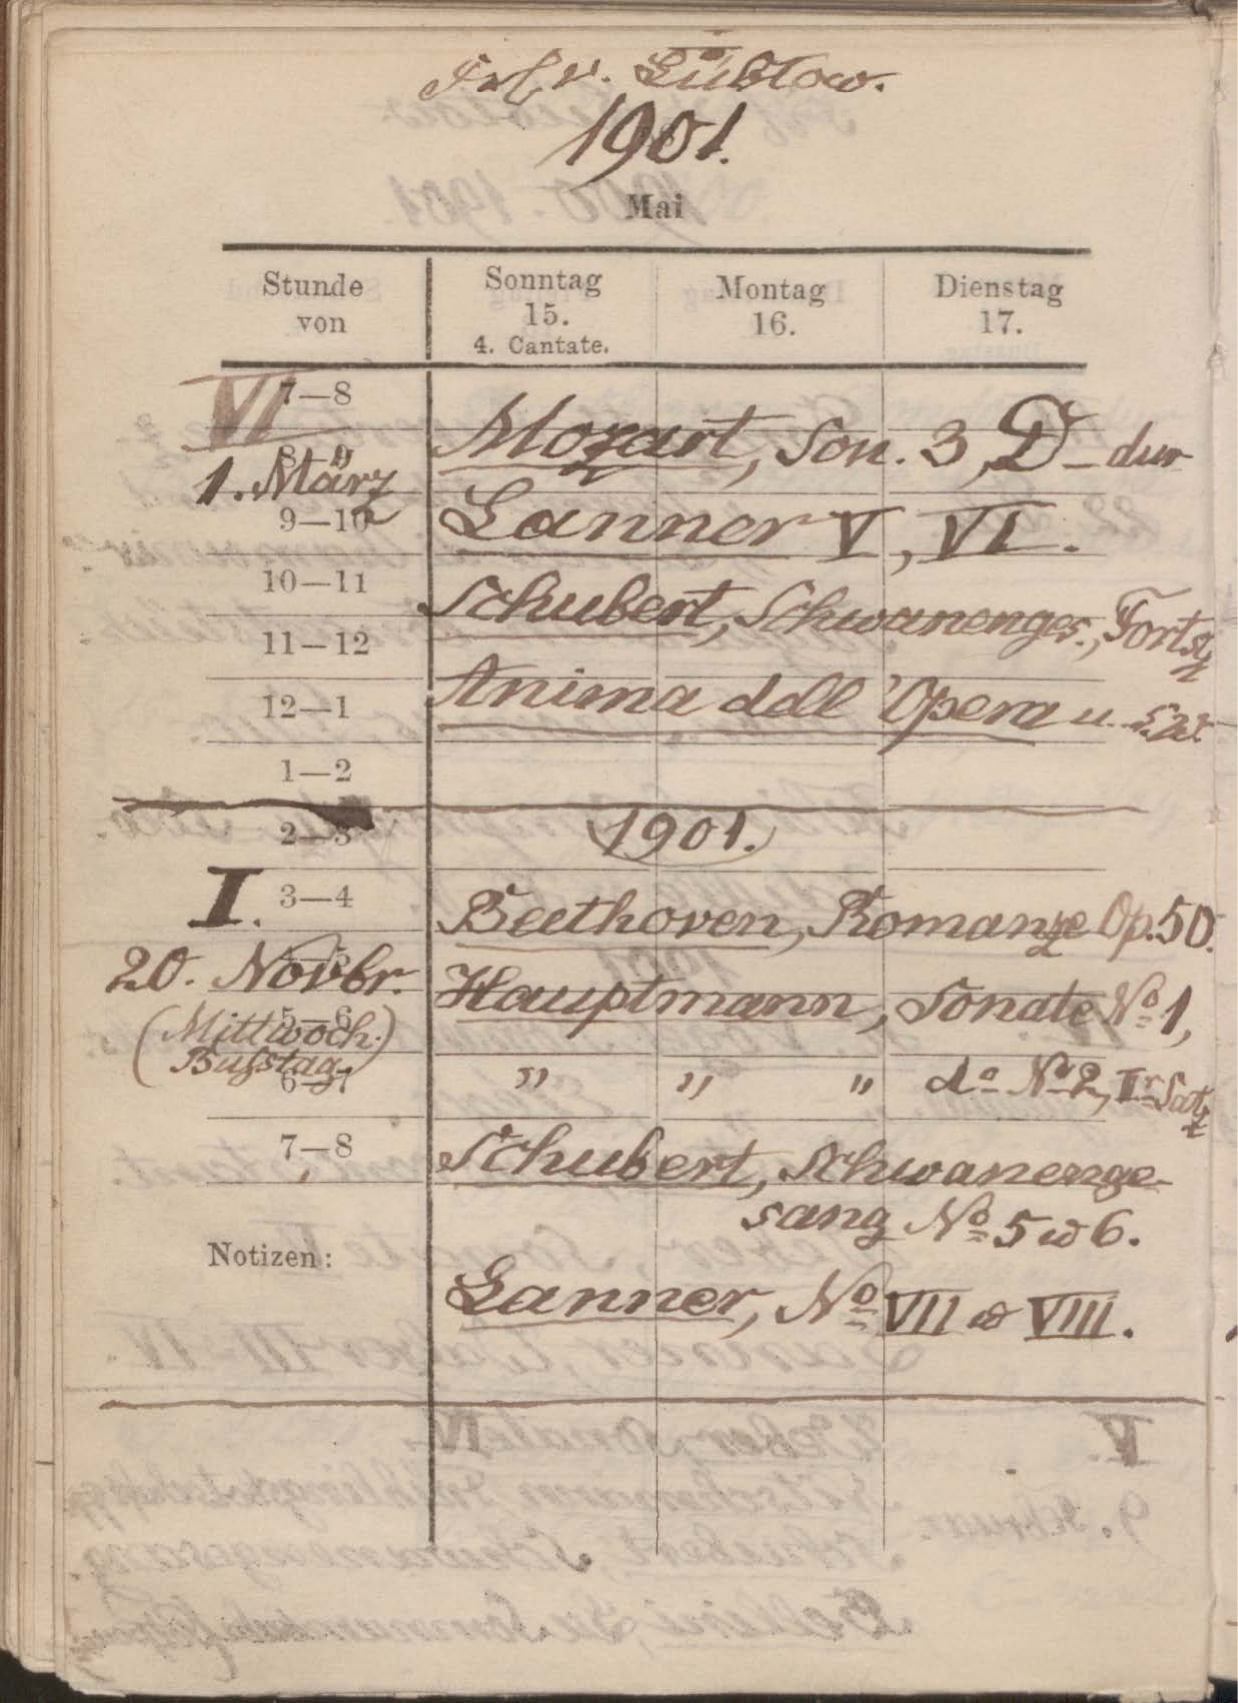 Frl. v. Lützow.
1901.
Mai
Stunde von
Sonntag 15. 4. Cantate.
Montag 16.
Dienstag 17.
VI 7—8
Mozart, Son. 3, D-dur
8—9
1. März
9—10
Lanner V, VI.
10—11
Schubert, Schwanenges., Fortsz
11—12
12—1
Anima dell'Opera u.
1—2
2—3
1901.
I. 3—4
Beethoven, Romanze Op. 50.
20. Novbr.
Hauptmann, Sonate No 1,
5—6
(Mittwoch.
Bußtag.)
6—7
" " " do No 2, Ir Satz
7—8
Schubert, Schwanenge-
sang No 5 & 6.
Notizen:
Lanner, No VII & VIII.